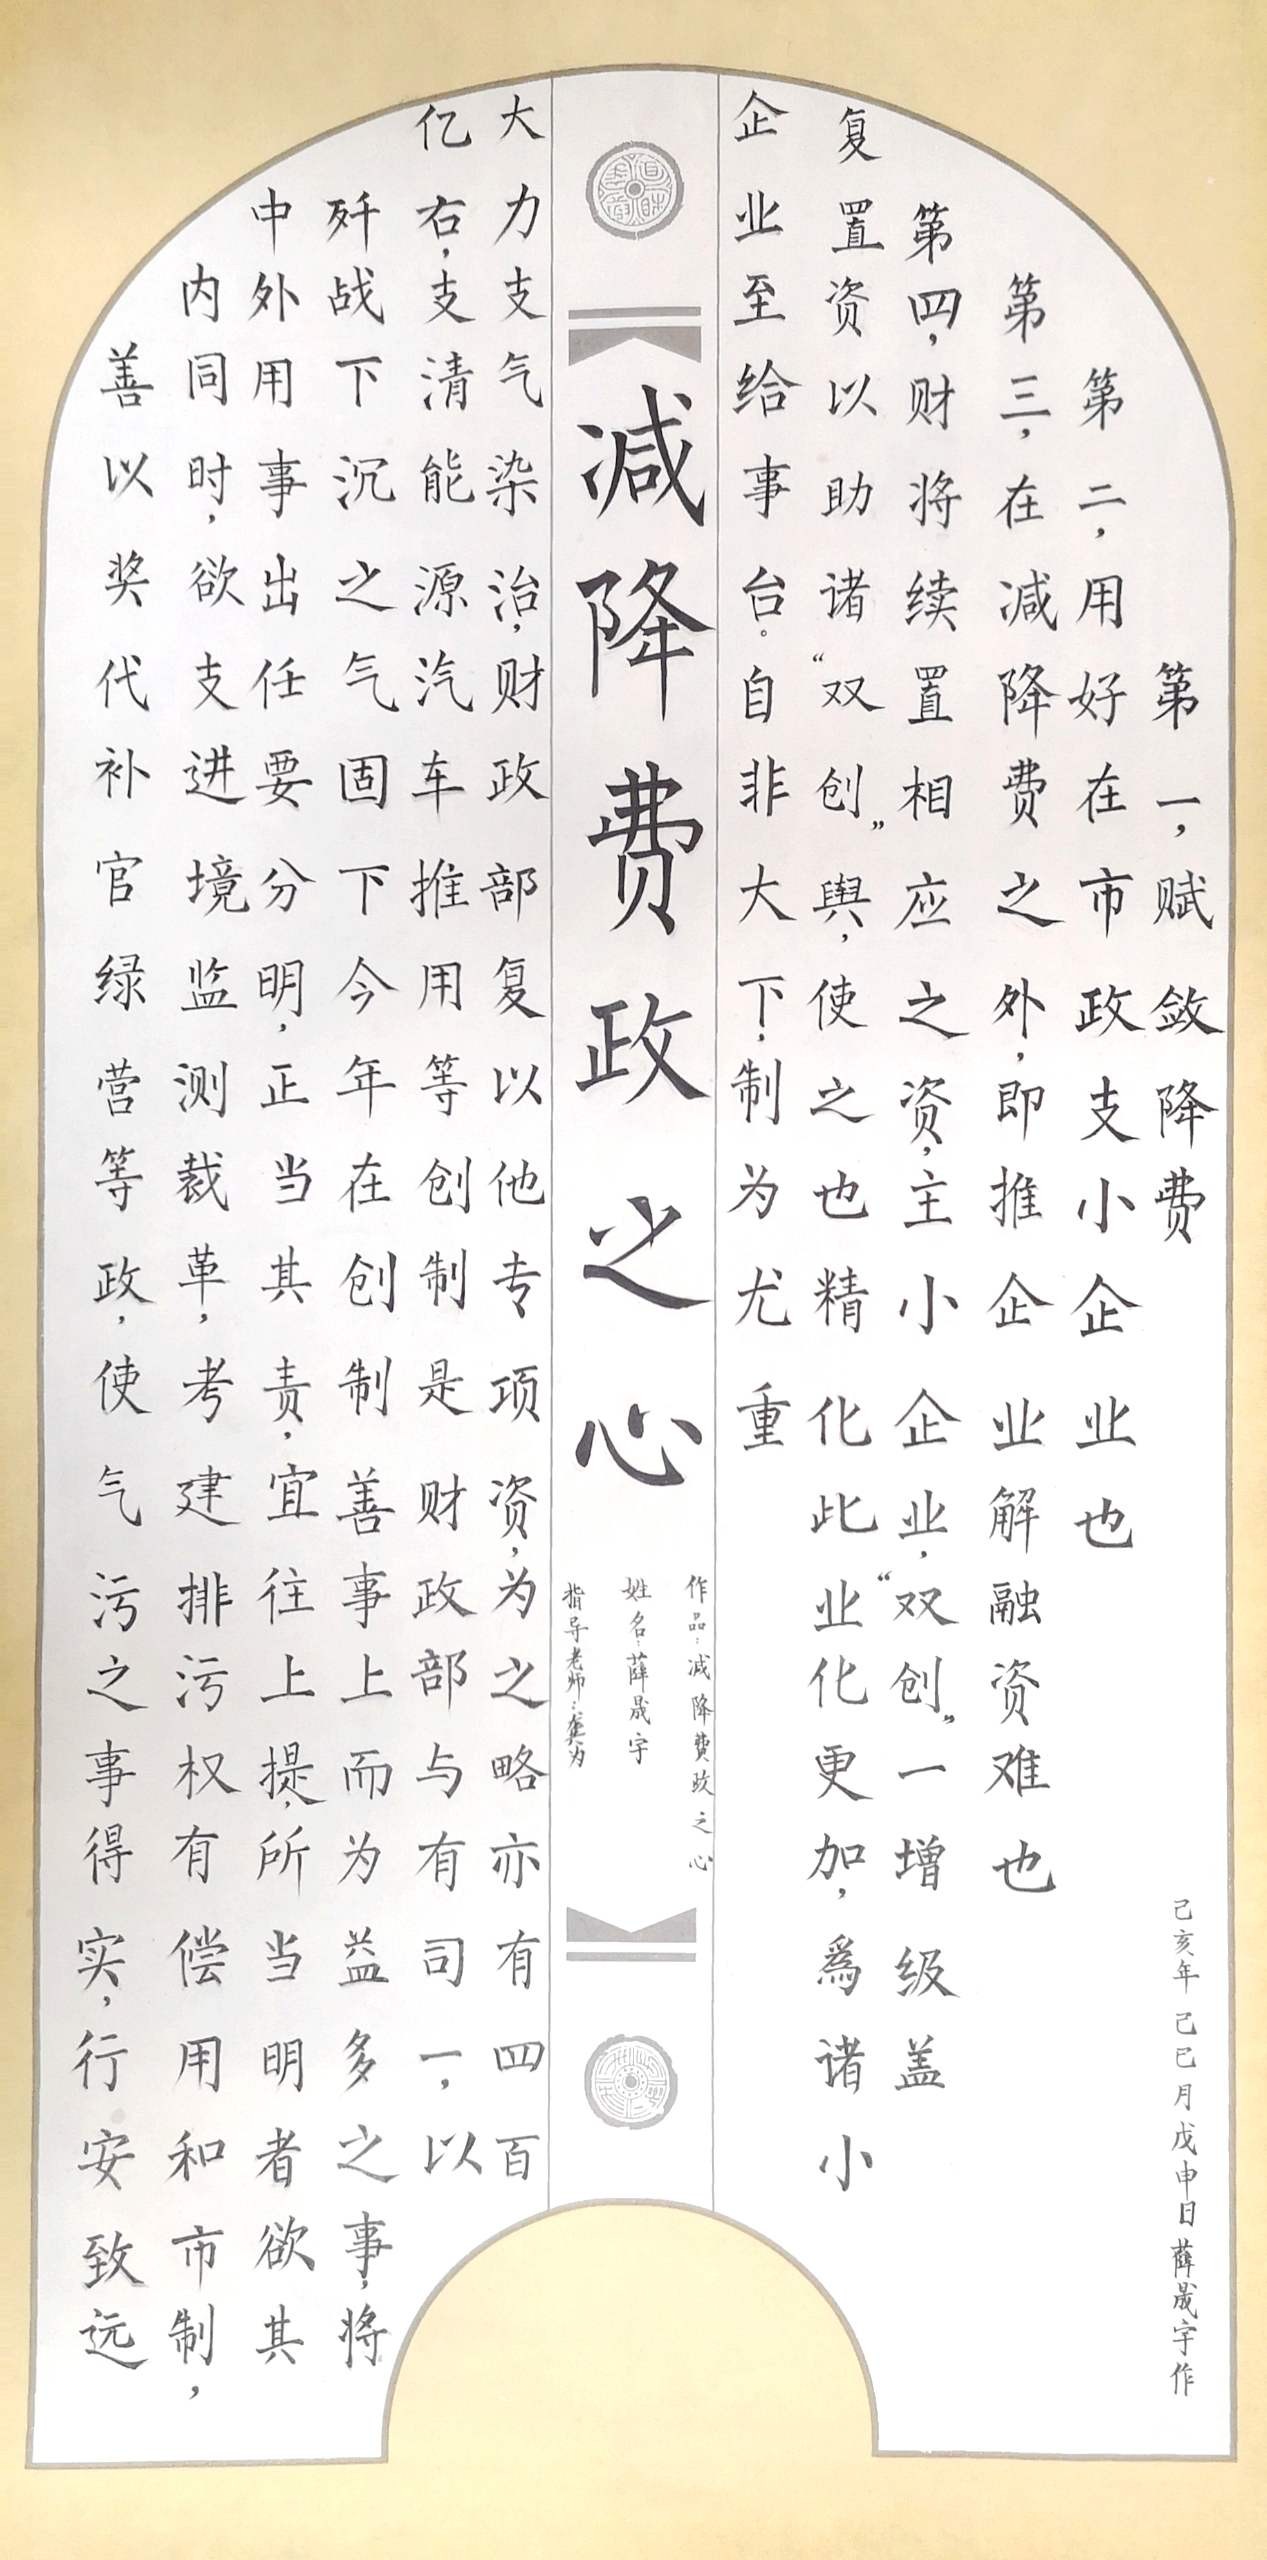 第一,赋敛降费
第二,用好在市政支小企业也
第三,在减降费之外,即推企业解融资难也
第四,财将续置相应之资,主小企业,“双创”一增级盖
复置资以助诸“双创”舆,使之也精化此业化更加,為诸小
企业至给事台。自非大下,制为尤重
减降费政之心
作品:减降费政之心
姓名:薛晟宇
指导老师:龚为
大力支气染治,财政部复以他专项资,为之略亦有四百
亿右,支清能源汽车推用等创制是财政部与有司一,以
歼战下沉之气固下今年在创制善事上而为益多之事,将
中外用事出任要分明,正当其责,宜往上提,所当明者欲其
内同时,欲支进境监测裁革,考建排污权有偿用和市制,
善以奖代补官绿营等政,使气污之事得实,行安致远
己亥年己巳月戊申日薛晟宇作